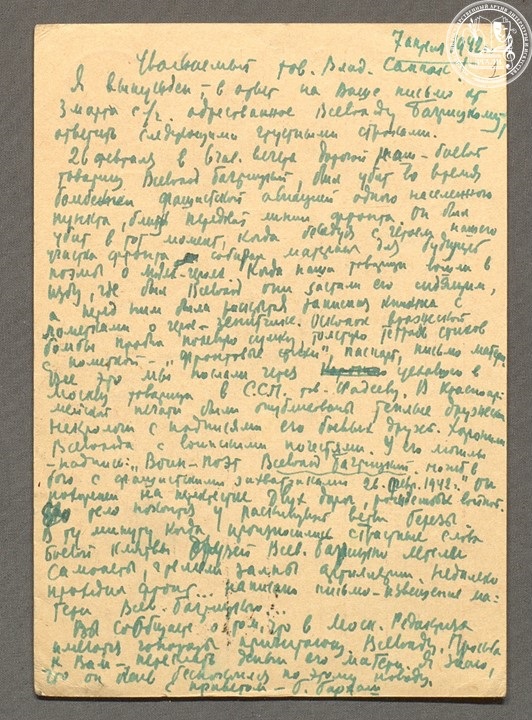 7 апреля 1942 г.
Уважаемый тов. Влад. Саппак
Я вынужден, в ответ на Ваше письмо от
3 марта с/г. адресованное Всеволоду Багрицкому,
ответить следующими грустными строками.
26 февраля в 6 час. вечера дорогой наш - боевой
товарищ Всеволод Багрицкий, был убит во время
бомбежки фашистской авиацией одного населенного
пункта, близ передней линии фронта. Он был
убит в тот момент, когда беседуя с героем нашего
участка фронта собирал материал для будущей
поэмы о герое. Когда наши товарищи вошли в
избу, где был Всеволод они застали его сидящим,
а перед ним была раскрытая записная книжка с
пометками о герое-зенитчике. Осколок вражеской
бомбы пробил полевую сумку, толстую тетрадь стихов
с пометкой - "Фронтовые стихи", паспорт, письмо матери.
Все это мы послали через уехавшего в
Москву товарища в ССП. тов. Фадееву. В Красноар-
мейской печати были опубликованы теплые дружеские
некрологи с подписями его боевых друзей. Хоронили
Всеволода с воинскими почестями. У его могилы
- надпись: "Воин-поэт Всеволод Багрицкий. погиб в
бою с фашистскими захватчиками 26 февр. 1942 г." Он
похоронен на перекрестке двух дорог,
тело покоится у раскинувшей ветви березы
В ту минуту когда произносились страстные слова
боевой клятвы друзей Всев. Багрицкого летели
самолеты, гремели залпы артиллерии. Недалеко
проходил фронт... написано письмо-извещение ма-
тери Всев. Багрицкого...
Вы сообщаете о том, что в Моск. Редакциях
имеются гонорары причитающ. Всеволоду. Просьба
к Вам - переслать деньги его матери. Я знаю,
что он очень беспокоился по этому поводу.
с приветом -